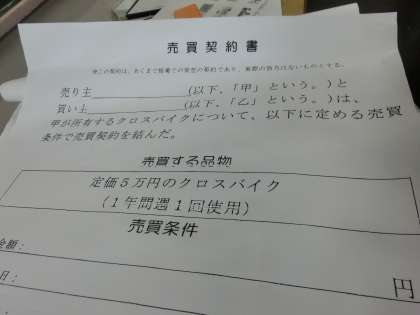 売買契約書
※この契約は、あくまで授業での架空の契約であり、実際の効力はないものとする。
売り主 (以下、「甲」という。)と
買い主 (以下、「乙」という。)は、
甲が所有するクロスバイクについて、以下に定める売買
条件で売買契約を結んだ。
売買する品物
定価5万円のクロスバイク
(1年間週1回使用)
売買条件
金額:
円
日: